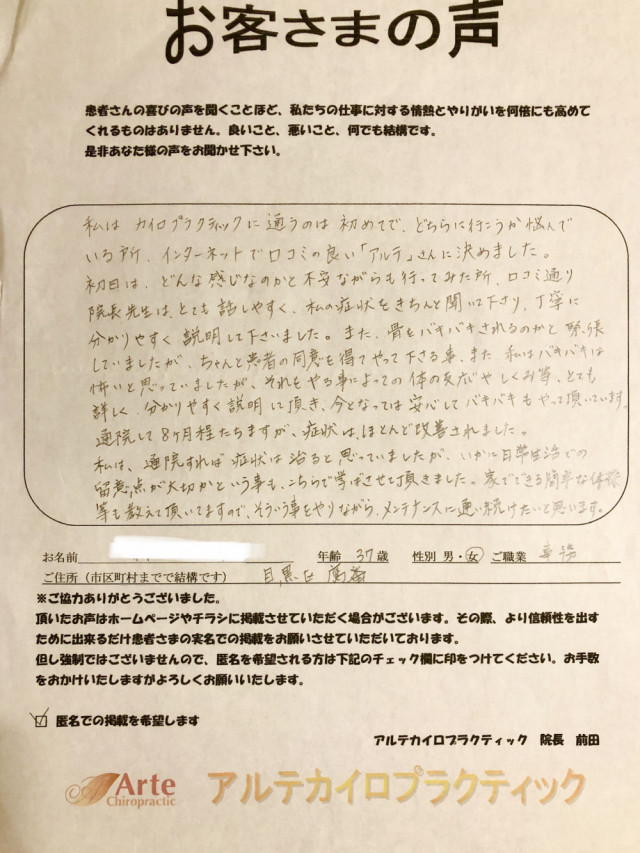 お客さまの声
患者さんの喜びの声を聞くことほど、私たちの仕事に対する情熱とやりがいを何倍にも高めて
くれるものはありません。良いこと、悪いこと、何でも結構です。
是非あなた様の声をお聞かせ下さい。
私は カイロプラクティックに通うのは 初めてで、どちらに行こうか悩んで
いる所、インターネットで口コミの良い「アルテ」さんに決めました。
初日は、どんな感じなのかと不安ながらも行ってみた所、口コミ通り
院長先生は、とても 話しやすく、私の症状をきちんと聞いて下さり、丁寧に
分かりやすく 説明して下さいました。また、骨をバキバキされるのかと 緊張
していましたが、ちゃんと患者の同意を得てやって下さる事、また 私はバキバキは
怖いと思っていましたが、それをやる事によっての 体の反応やしくみ等、とても
詳しく、分かりやすく説明して頂き、今となっては 安心して バキバキもやって頂いています。
通院して 8ヶ月程たちますが、症状は、ほとんど改善されました。
私は、通院すれば 症状は 治ると 思っていましたが、いかに日常生活での
留意点が大切かという事も、こちらで学ばせて頂きました。家でできる簡単な体操
等も教えて頂いてますので、そういう事をやりながら、メンテナンスに通い続けたいと思います。
お名前 年齢 37歳 性別 男・女 ご職業 事務
ご住所（市区町村までで結構です） 目黒区
※ご協力ありがとうございました。
頂いたお声はホームページやチラシに掲載させていただく場合がございます。その際、より信頼性を出す
ために出来るだけ患者さまの実名での掲載をお願いさせていただいております。
但し強制ではございませんので、匿名を希望される方は下記のチェック欄に印をつけてください。お手数
をおかけいたしますがよろしくお願いいたします。
☑ 匿名での掲載を希望します
アルテカイロプラクティック 院長 前田
Arte
Chiropractic
アルテカイロプラクティック